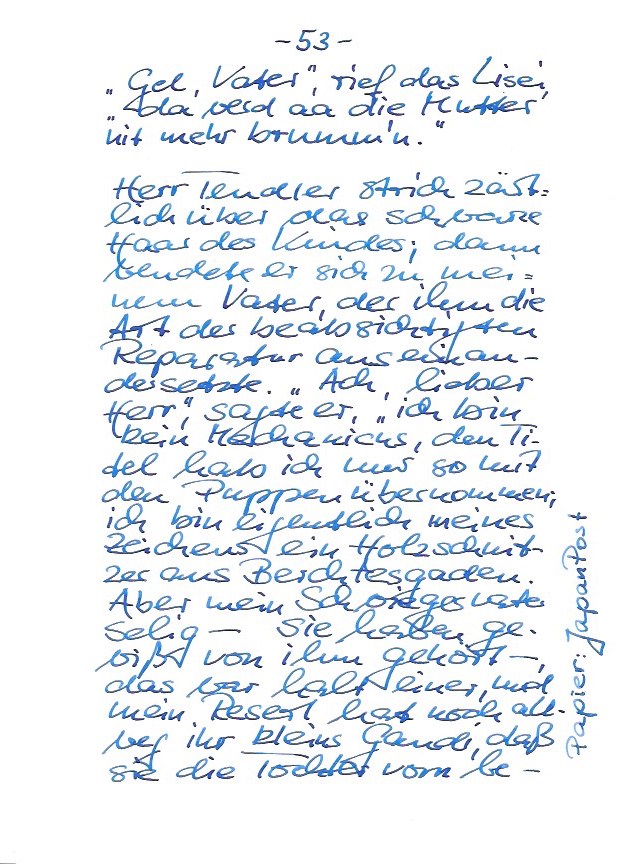 - 53 -
„Gel, Vater", rief das Lisei,
„da werd aa die Mutter
nit mehr brumm'n."
Herr Tendler strich zärt=
lich über das schwarze
Haar des Kindes; dann
wendete er sich zu mei=
nem Vater, der ihm die
Art der beabsichtigten
Reparatur auseinan-
dersetzte. „Ach, lieber
Herr", sagte er, „ich bin
kein Mechanicus, den Ti-
tel hab ich nur so mit
den Puppen übernommen;
ich bin eigentlich meines
Zeichens ein Holzschnit-
zer aus Berchtesgaden.
Aber mein Schwiegervater
selig — Sie haben ge-
wißt von ihm gehört —,
das war halt einer, und
mein Reserl hat noch all-
weg ihr kleins Gaudi, daß
sie die Tochter vom be-
Papier: JapanPost